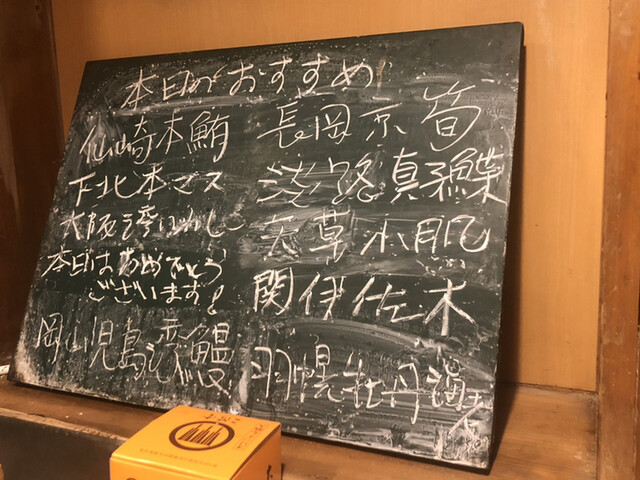 本日のおすすめ
仙崎本鮪
下北本マス
大阪湾いわし
本日はおめでとう
ございます!
岡山児島 鰻
長岡京 筍
淡路真鰈
天草小肌
関伊佐木
羽幌牡丹海老